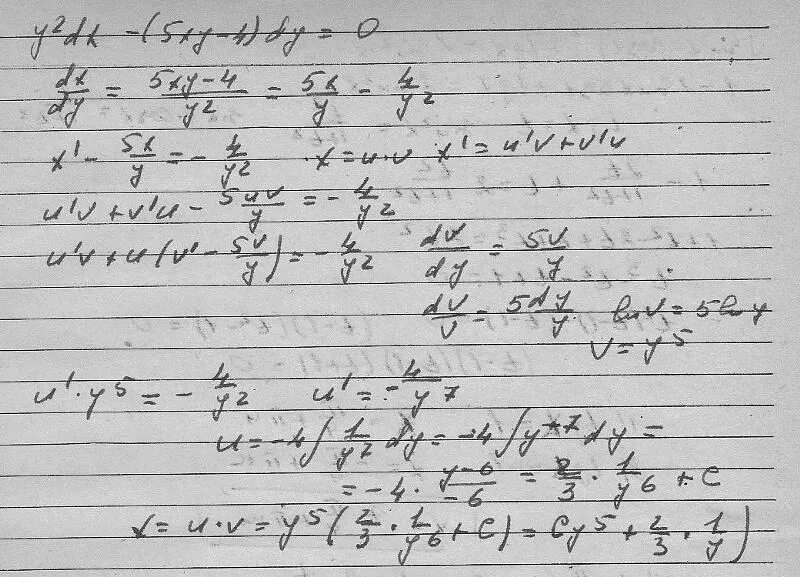 y²dx - (5xy-4)dy = 0
dx/dy = (5xy-4)/y² = 5x/y - 4/y²
x' - 5x/y = - 4/y² · x = u·v x' = u'v + v'u
u'v + v'u - 5uv/y = - 4/y²
u'v + u(v' - 5v/y) = - 4/y² dv/dy = 5v/y
dv/v = 5dy/y ln v = 5 ln y
v = y⁵
u'·y⁵ = - 4/y² u' = - 4/y⁷
u = -4∫ 1/y² dy = -4∫ y⁻⁷ dy =
= -4 · y⁻⁶/-6 = 2/3 · 1/y⁶ + C
x = u·v = y⁵(2/3 · 1/y⁶ + C) = Cy⁵ + 2/3 · 1/y)